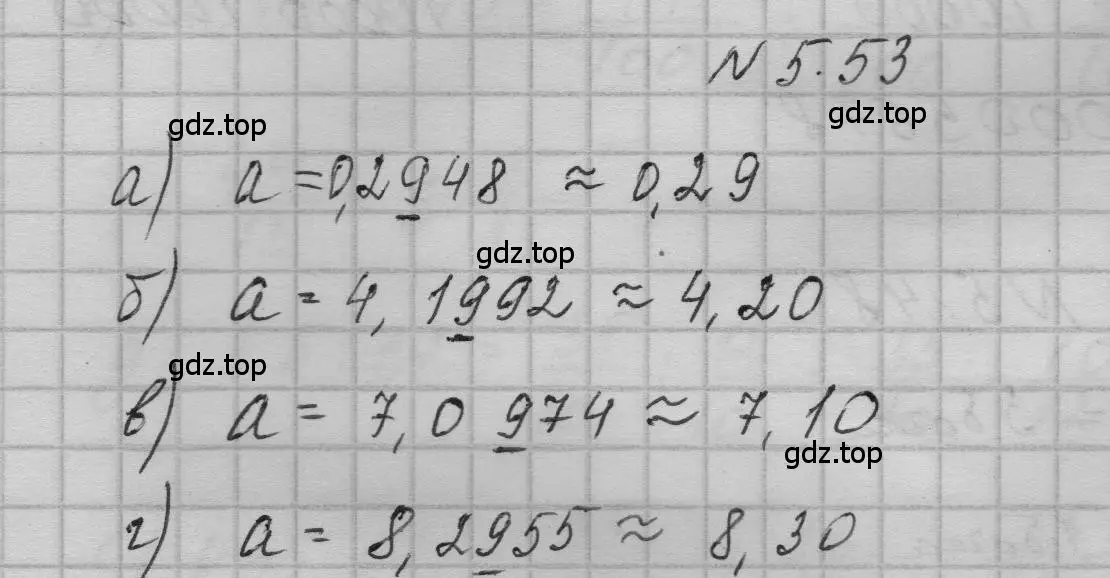 N 5.53
gdz.top
gdz.top
а) a = 0,2948 ≈ 0,29
gdz.top
б) a = 4,1992 ≈ 4,20
gdz.top
в) a = 7,0974 ≈ 7,10
gdz.top
г) a = 8,2955 ≈ 8,30